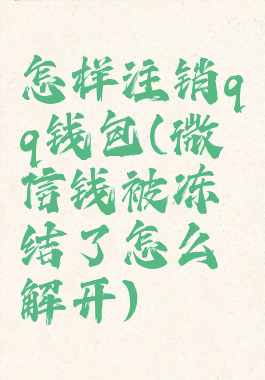 怎样注销q
q钱包(微
信钱被冻
结了怎么
解开)